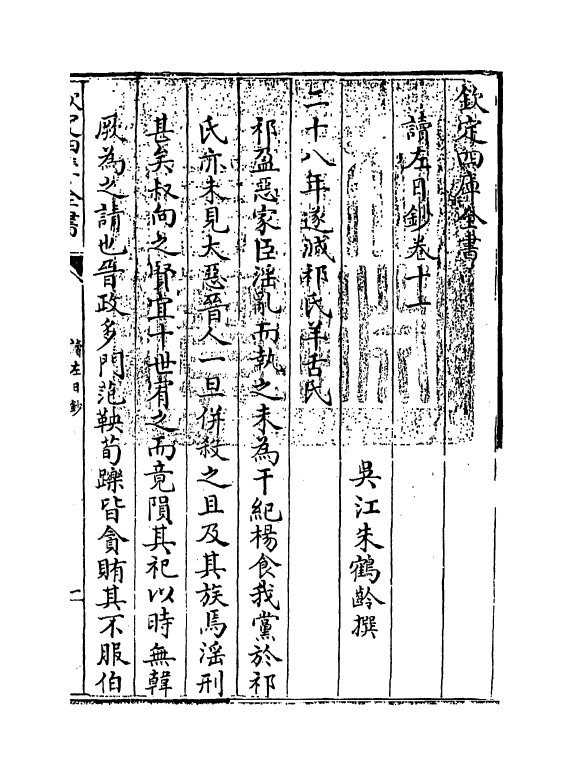 欽定四庫全書
讀左日鈔卷十一
吳江朱鶴齡撰
二十八年遂滅祁氏羊舌氏
祁盈惡家臣淫亂而執之未為干紀楊食我黨於祁
氏亦未見大惡晉人一旦併殺之且及其族焉淫刑
甚矣叔向之賢宜十世宥之而竟隕其祀以時無韓
厥為之請也晉政多門范鞅荀躒皆貪賄其不服伯
欽定四庫全書
讀左日鈔